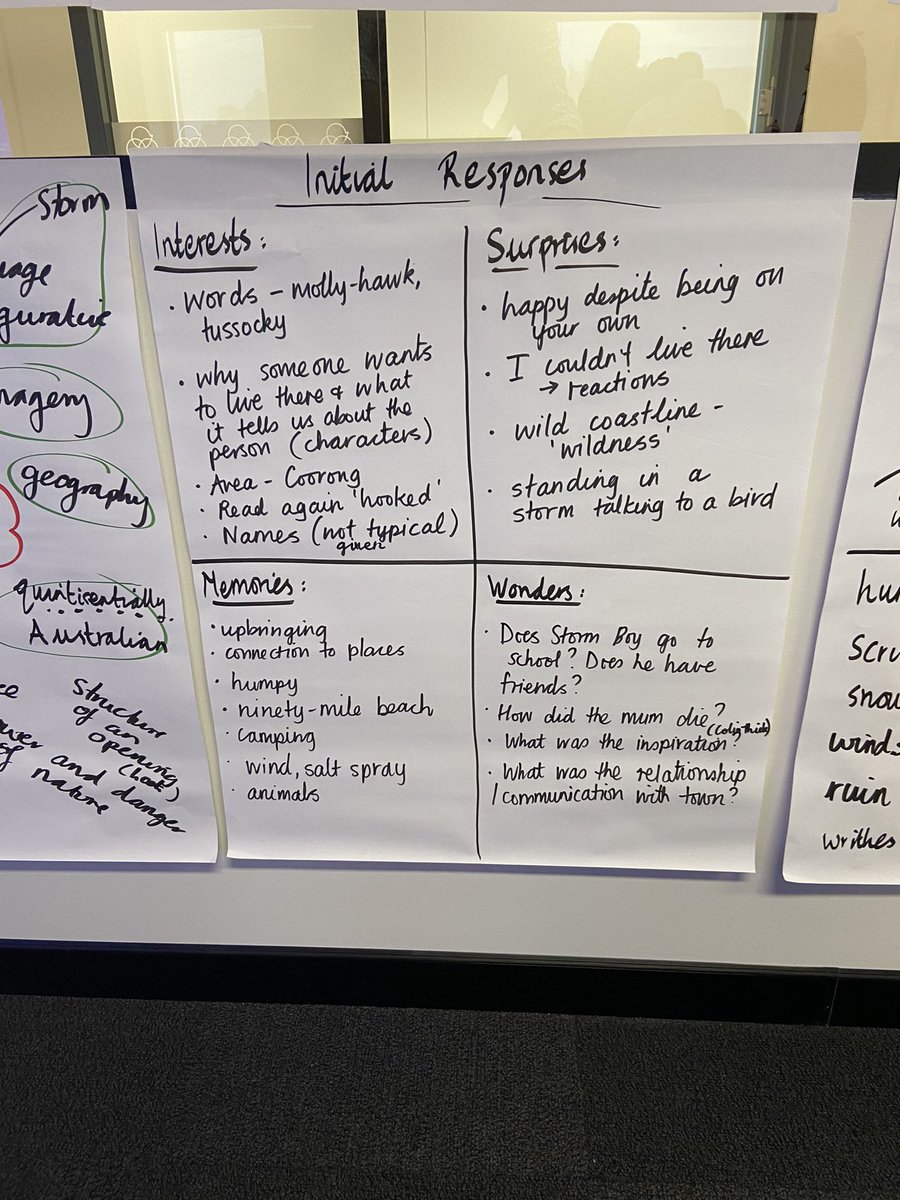 Storm
geography
quintisentially
Australian
Structure
of an
opening
(hook)
and danger
of nature
Initial Responses
Interests:
· Words - molly-hawk,
tussocky
· why someone wants
to live there & what
it tells us about the
person (characters)
· Area - Coorong
· Read again 'hooked'
· Names (not typical)
given
Surprises:
· happy despite being on
your own
· I couldn't live there
→ reactions
· wild coastline -
'wildness'
· standing in a
storm talking to a bird
Memories:
· upbringing
· connection to places
· humpy
· ninety-mile beach
· camping
· wind, salt spray
· animals
Wonders:
· Does Storm Boy go to
school? Does he have
friends?
· How did the mum die?
(Colin Thiele)
· What was the inspiration?
· What was the relationship
/communication with town?
ruin
writhes